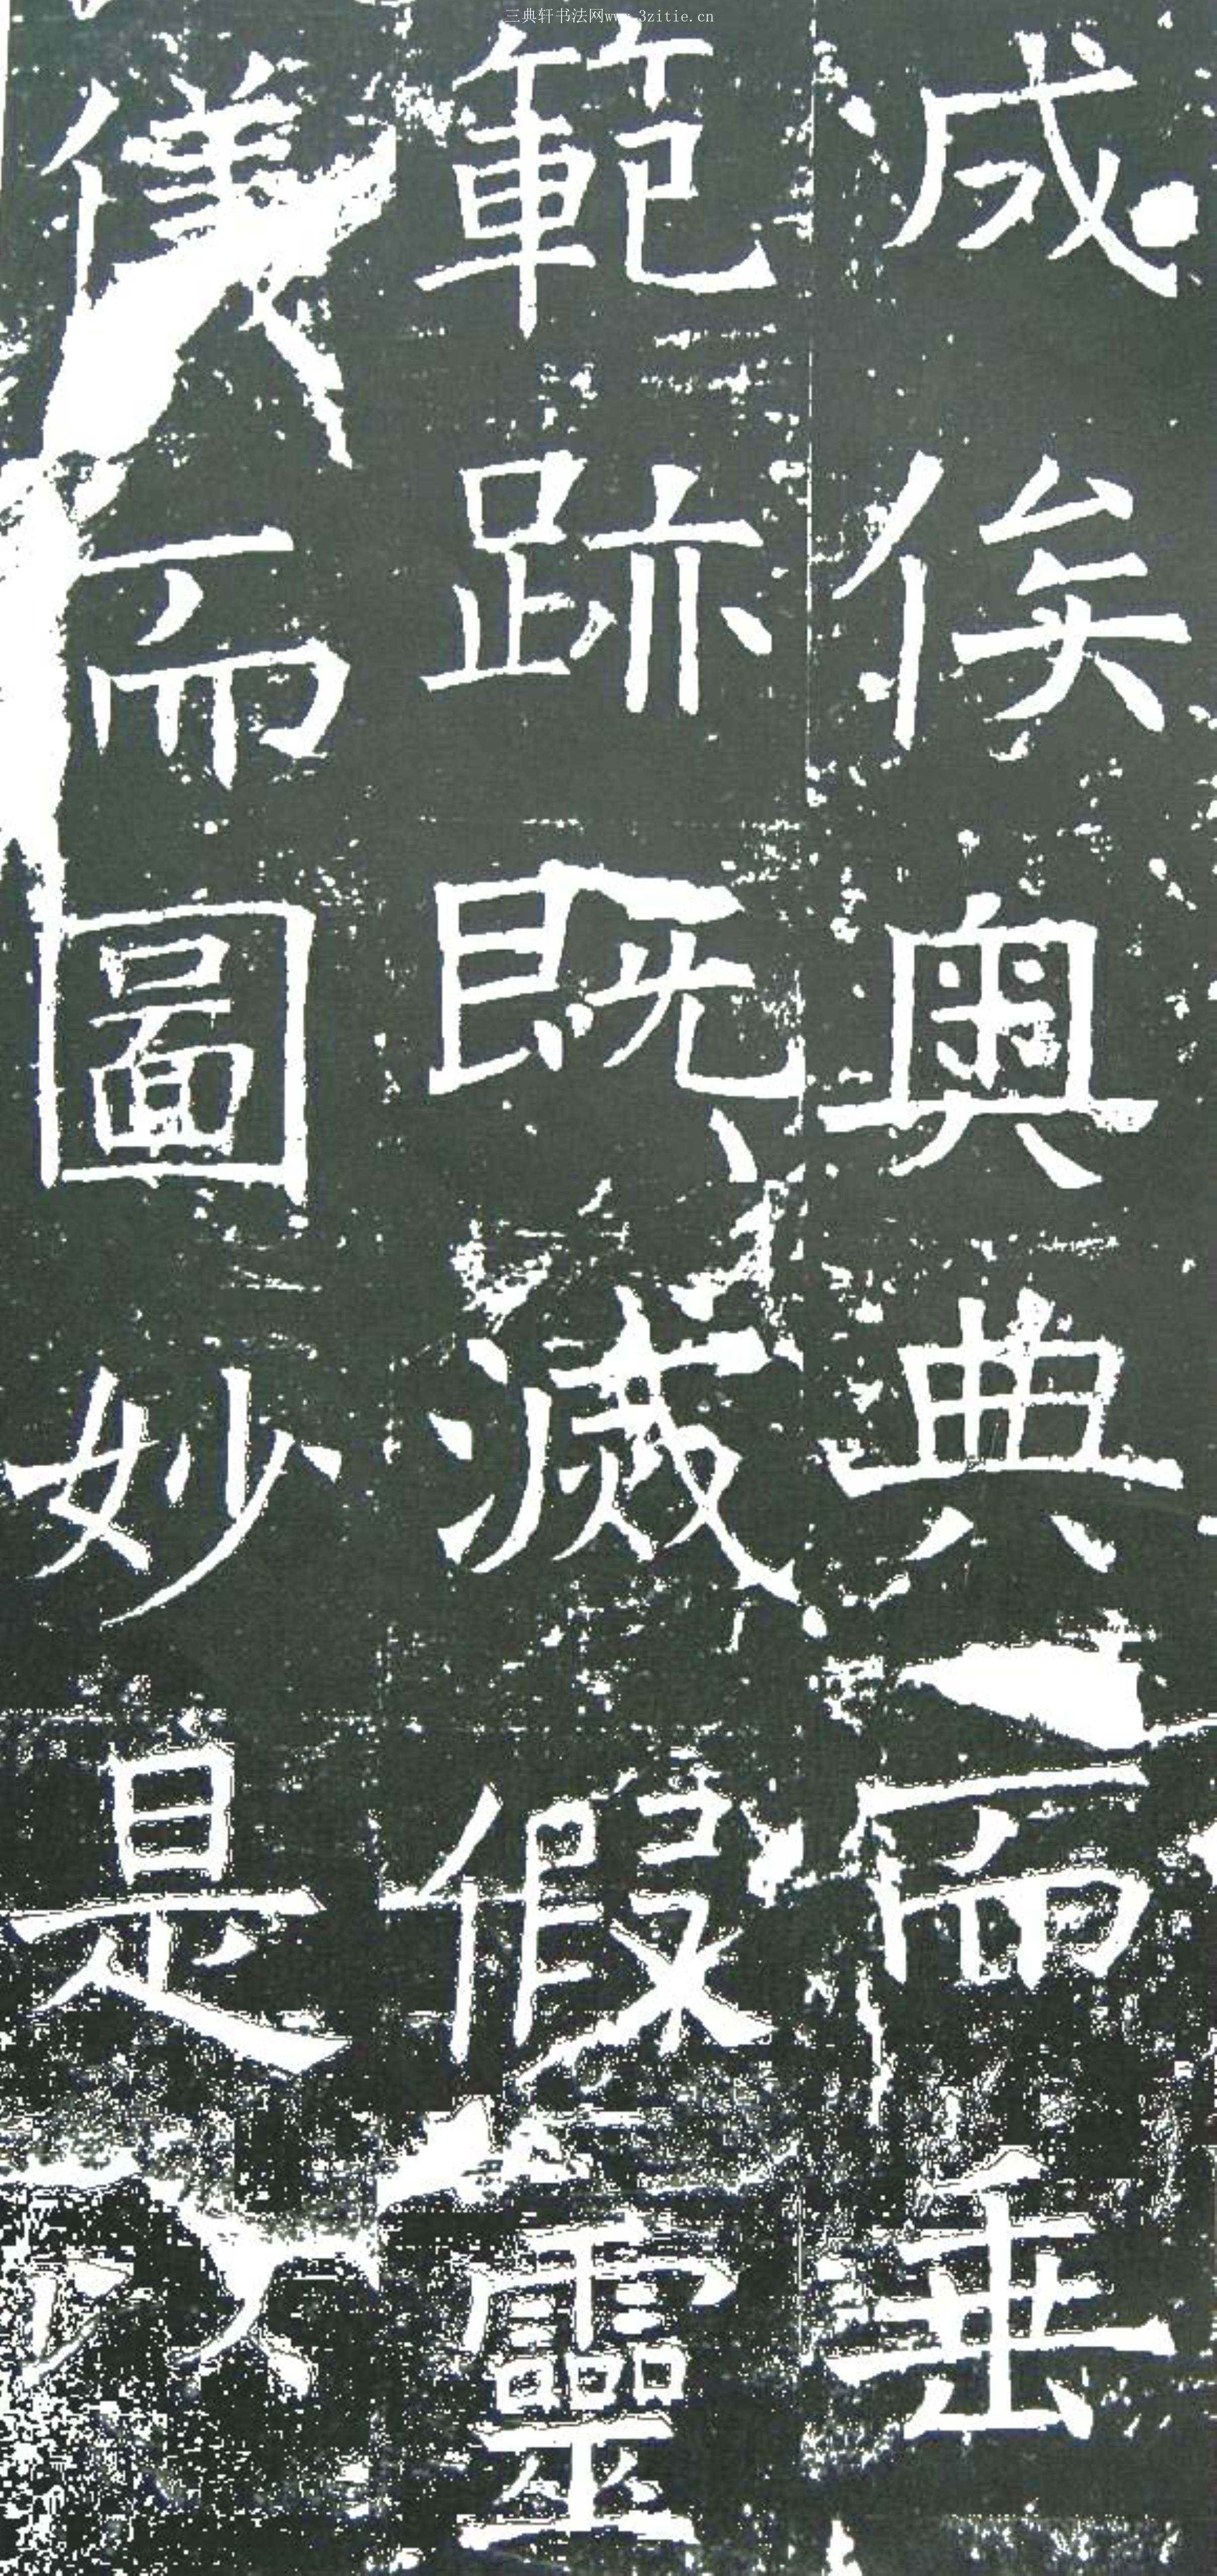 三典轩书法网www.3zitie.cn
成俟奧典而垂
範跡既滅假靈
儀而圖妙是以